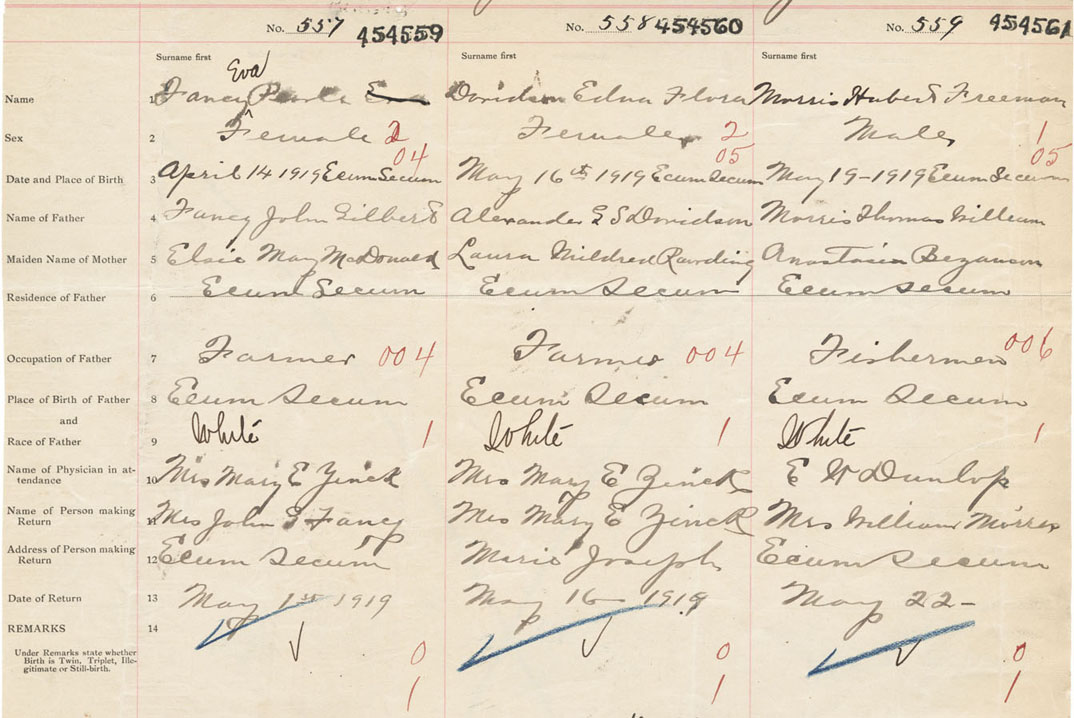 No. 557 454559 No. 558 454560 No. 559 454561
Surname first Surname first Surname first
Eva
Name 1 Fancy Eva Davidson Edna Flora Morris Hubert Freeman
Sex 2 Female 2 Female 2 Male 1
04 05 05
Date and Place of Birth 3 April 14 1919 Ecum Secum May 16th 1919 Ecum Secum May 19-1919 Ecum Secum
Name of Father 4 Fancy John Gilbert Alexander Davidson Morris Thomas William
Maiden Name of Mother 5 Elsie May McDonald Laura Mildred Rawding Anastasia Bezanson
Residence of Father 6 Ecum Secum Ecum Secum Ecum Secum
Occupation of Father 7 Farmer 004 Farmer 004 Fishermen 006
Place of Birth of Father 8 Ecum Secum Ecum Secum Ecum Secum
and
Race of Father 9 White 1 White 1 White 1
Name of Physician in at-
tendance 10 Mrs Mary E Zinck Mrs Mary E Zinck E W Dunlop
Name of Person making
Return 11 Mrs John G Fancy Mrs Mary E Zinck Mrs William Morris
Address of Person making
Return 12 Ecum Secum Marie Joseph Ecum Secum
Date of Return 13 May 1st 1919 May 16 - 1919 May 22-
REMARKS 14
Under Remarks state whether
Birth is Twin, Triplet, Ille-
gitimate or Still-birth.
0 0 0
1 1 1